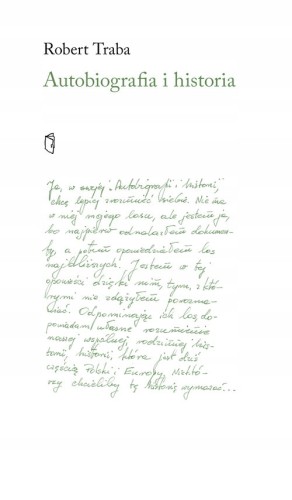 Robert Traba
Autobiografia i historia
Ja, w swojej „Autobiografii i historii",
chcę lepiej zrozumieć siebie. Nie ma
w niej mojego losu, ale jestem ja,
bo najpierw odnalazłem dokumen-
ty, a potem opowiedziałem los
najbliższych. Jestem w tej
opowieści dzięki nim, tym, z któ-
rymi nie zdążyłem porozma-
wiać. Odpominając ich los, do-
powiadam własne rozumienie
naszej wspólnej, rodzinnej his-
torii, historii, która jest dziś
częścią Polski i Europy. Niektó-
rzy chcieliby tę historię wymazać...